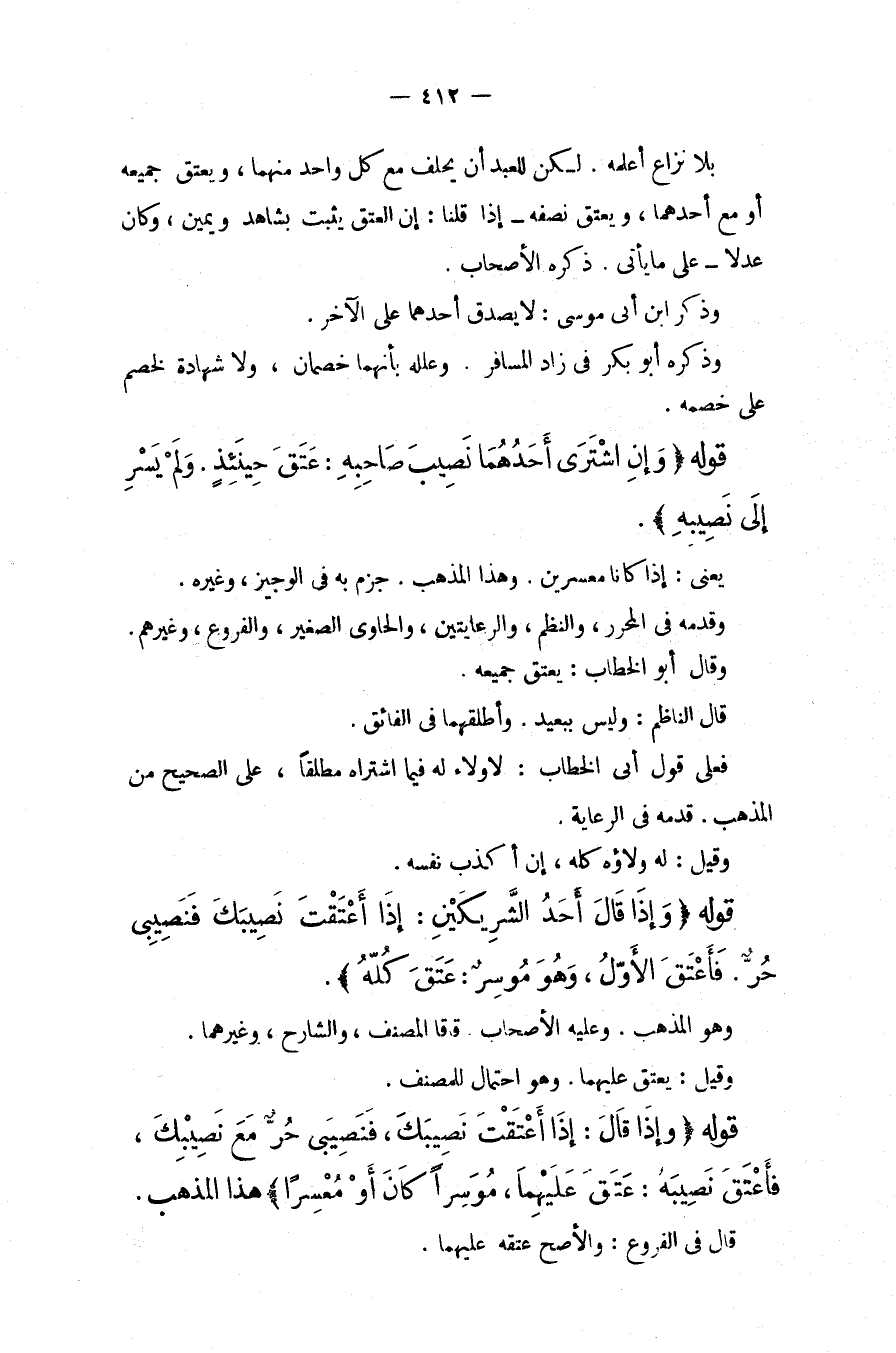 — ٤١٢ —
بلا نزاع أعلمه . لـكن للعبد أن يحلف مع كل واحد منهما ، ويعتق جميعه
أو مع أحدهما ، ويعتق نصفه ــ إذا قلنا : إن العتق يثبت بشاهد ويمين ، وكان
عدلا ــ على مايأتى . ذكره الأصحاب .
وذكر ابن أبى موسى : لايصدق أحدهما على الآخر .
وذكره أبو بكر فى زاد المسافر . وعلله بأنهما خصمان ، ولا شهادة لخصم
على خصمه .
قوله ﴿ وَإنِ اشْتَرَى أَحَدُهُمَا نَصِيبَ صَاحِبِهِ : عَتَقَ حِينَئِذٍ . وَلَمْ يَسْرِ
إلَى نَصِيبِهِ ﴾ .
يعنى : إذا كانا معسرين . وهذا المذهب . جزم به فى الوجيز ، وغيره .
وقدمه فى المحرر ، والنظم ، والرعايتين ، والحاوى الصغير ، والفروع ، وغيرهم .
وقال أبو الخطاب : يعتق جميعه .
قال الناظم : وليس ببعيد . وأطلقهما فى الفائق .
فعلى قول أبى الخطاب : لاولاء له فيما اشتراه مطلقاً ، على الصحيح من
المذهب . قدمه فى الرعاية .
وقيل : له ولاؤه كله ، إن أكذب نفسه .
قوله ﴿ وَإذَا قَالَ أَحَدُ الشَّرِيكَيْنِ : إذَا أَعْتَقْتَ نَصِيبَكَ فَنَصِيبِى
حُرٌّ . فَأَعْتَقَ الأَوّلُ ، وَهُوَ مُوسِرٌ : عَتَقَ كُلّهُ ﴾ .
وهو المذهب . وعليه الأصحاب . وقا المصنف ، والشارح ، وغيرهما .
وقيل : يعتق عليهما . وهو احتمال للمصنف .
قوله ﴿ وإذَا قاَلَ : إذَا أَعْتَقْتَ نَصِيبَكَ ، فَنَصِيَبى حُرٌّ مَعَ نَصِيْبِكَ ،
فأَعْتَقَ نَصِيبَهُ : عَتَقَ عَلَيْهِماَ ، مُوَسِراً كَانَ أَوْ مُعْسِرًا ﴾ هذا المذهب .
قال فى الفروع : والأصح عتقه عليهما .